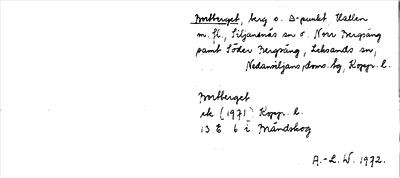 Bortberget, berg o. Δ-punkt, Hallen
m. fl., Siljansnäs sn o. Norr Bergsäng
samt Söder Bergsäng, Leksands sn,
Nedansiljans doms. hg, Kopp. l.
Bortberget
ek (1971) Kopp. l.
13 E 6 i Brändskog
A.-L. W. 1972.